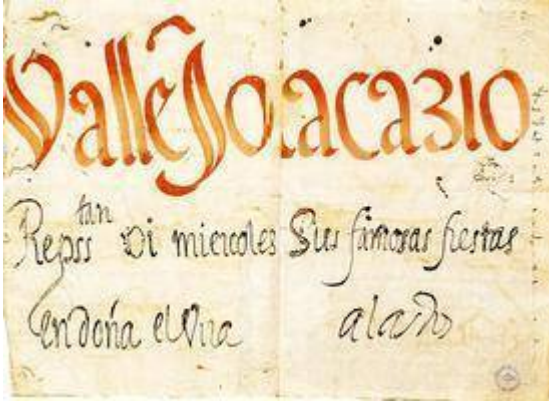 ValleJo, acazio
Repss tan Oi miercoles Sus famosas fiestas
En doña elvira a las